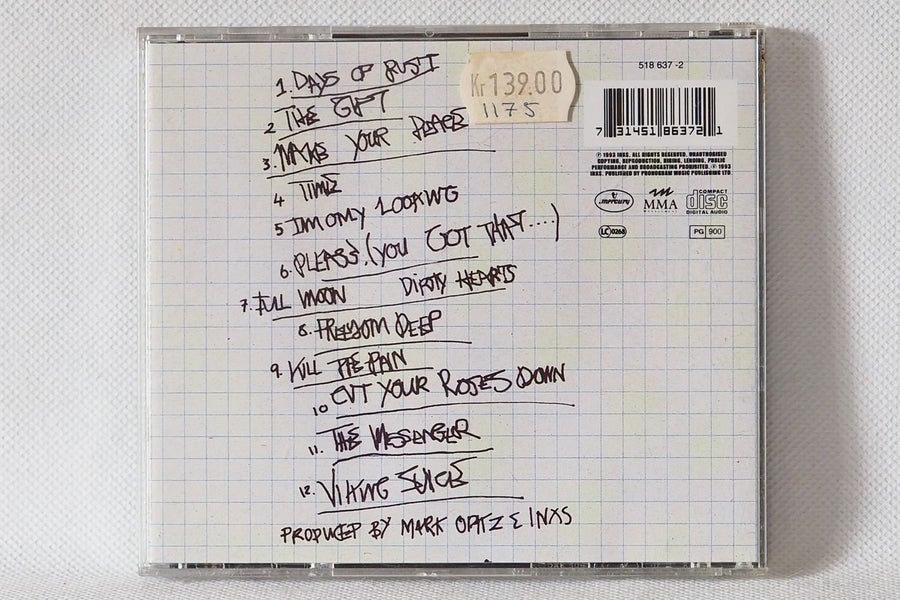 1. DAYS OF RUST
2 THE GIFT
3. MAKE YOUR PEACE
4 TIME
5 I'M ONLY LOOKING
6. PLEASE (YOU GOT THAT....)
7. FULL MOON DIRTY HEARTS
8. FREEDOM DEEP
9. KILL THE PAIN
10 CUT YOUR ROSES DOWN
11. THE MESSENGER
12. VIKING JUICE
PRODUCED BY MARK OPITZ & INXS
Kr 139.00
1175
518 637-2
7 31451 86372 1
℗ 1993 INXS. ALL RIGHTS RESERVED. UNAUTHORISED
COPYING, REPRODUCTION, HIRING, LENDING, PUBLIC
PERFORMANCE AND BROADCASTING PROHIBITED. © 1993
INXS. PUBLISHED BY PHONOGRAM MUSIC PUBLISHING LTD
mercury
MMA
COMPACT
disc
DIGITAL AUDIO
LC 0268
PG 900